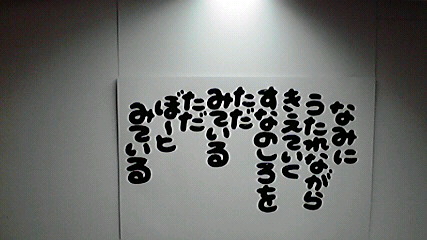 なみに
うたれながら
きえていく
すなのしろを
ただ
みている
ただ
ぼーと
みている